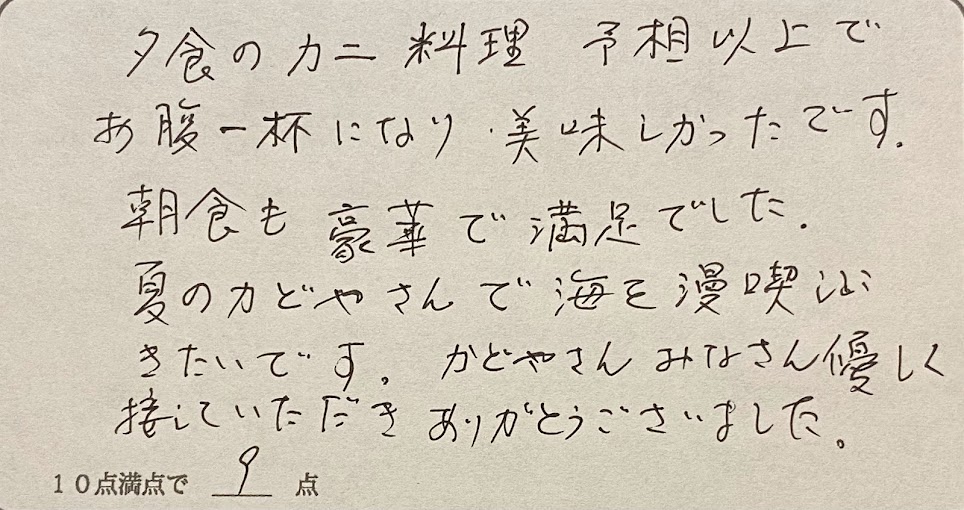 夕食のカニ料理 予想以上で
お腹一杯になり、美味しかったです。
朝食も豪華で満足でした。
夏のカどやさんで海を漫喫しに
きたいです。かどやさんみなさん優しく
接していただきありがとうございました。
10点満点で 9 点